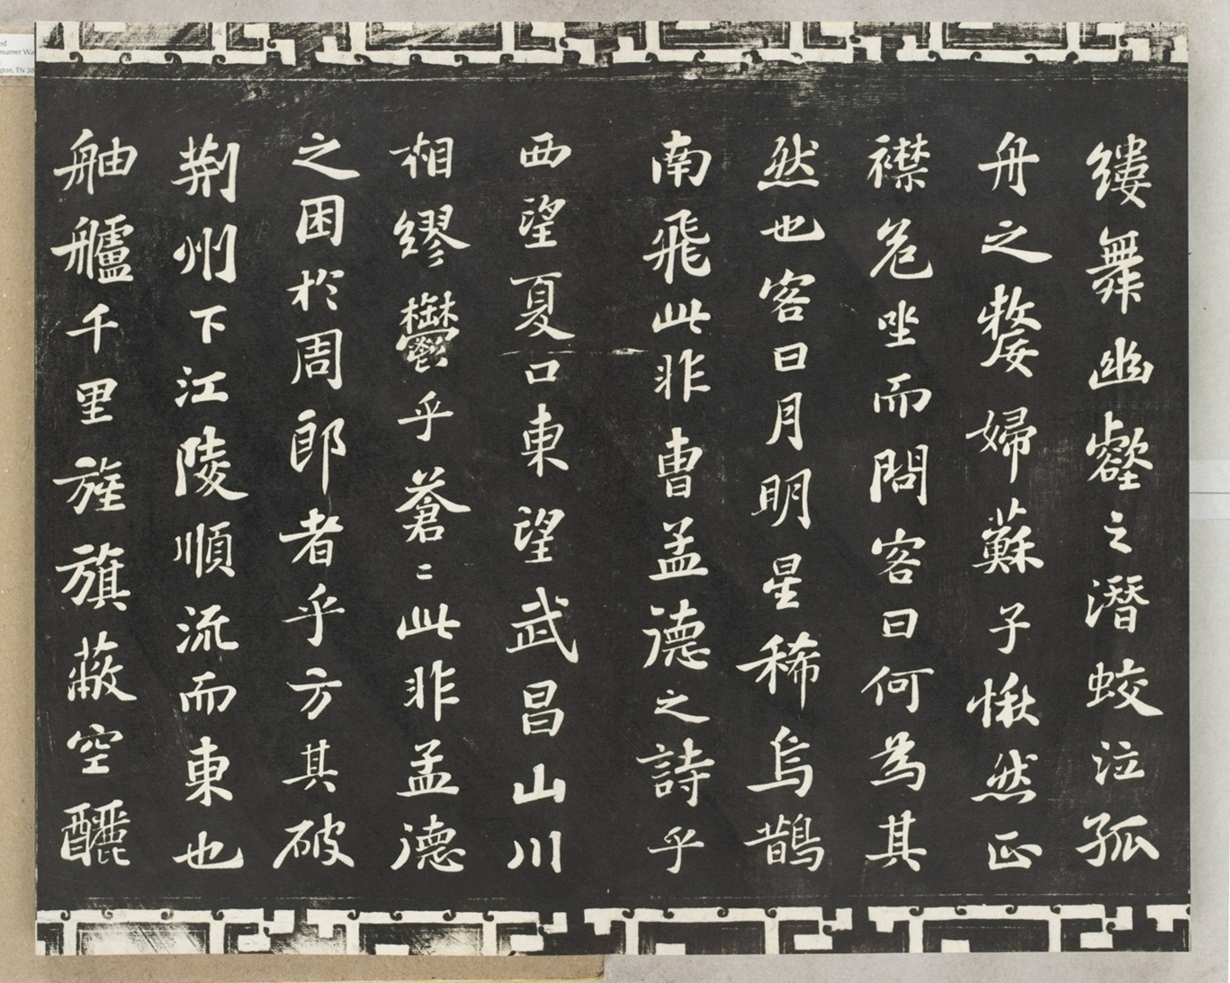 縷舞幽壑之潛蛟泣孤
舟之嫠婦蘇子愀然正
襟危坐而問客曰何為其
然也客曰月明星稀烏鵲
南飛此非曹孟德之詩乎
西望夏口東望武昌山川
相繆鬱乎蒼〻此非孟德
之困於周郎者乎方其破
荆州下江陵順流而東也
舳艫千里旌旗蔽空釃